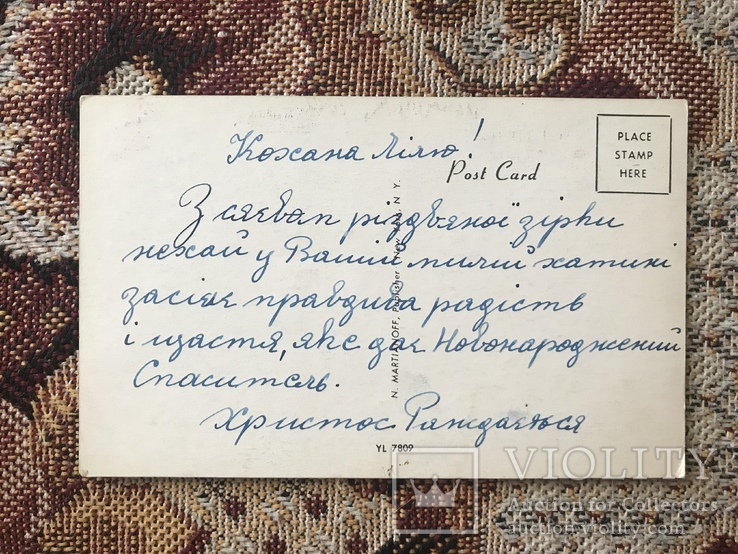 Кохана Лілю!
Post Card
PLACE
STAMP
HERE
З сяєвом різдвяної зірки
нехай у Вашій милій хатині
засіяє правдива радість
і щастя, яке дає Новонароджений
Спаситель.
Христос Раждається
N. MARTIANOFF, Publisher New York, N. Y.
YL 7809
VIOLITY
Auction for Collectors
auction.violity.com